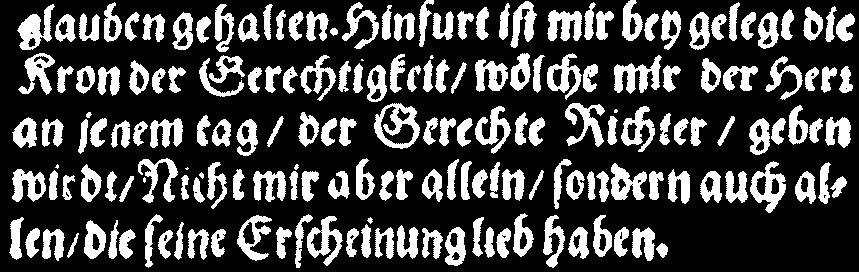 glauben gehalten. Hinfurt ist mir bey gelegt die
Kron der Gerechtigkeit/ wölche mir der Herr
an jenem tag / der Gerechte Richter / geben
wirdt/ Nicht mir aber allein/ sondern auch al-
len/ die seine Erscheinung lieb haben.